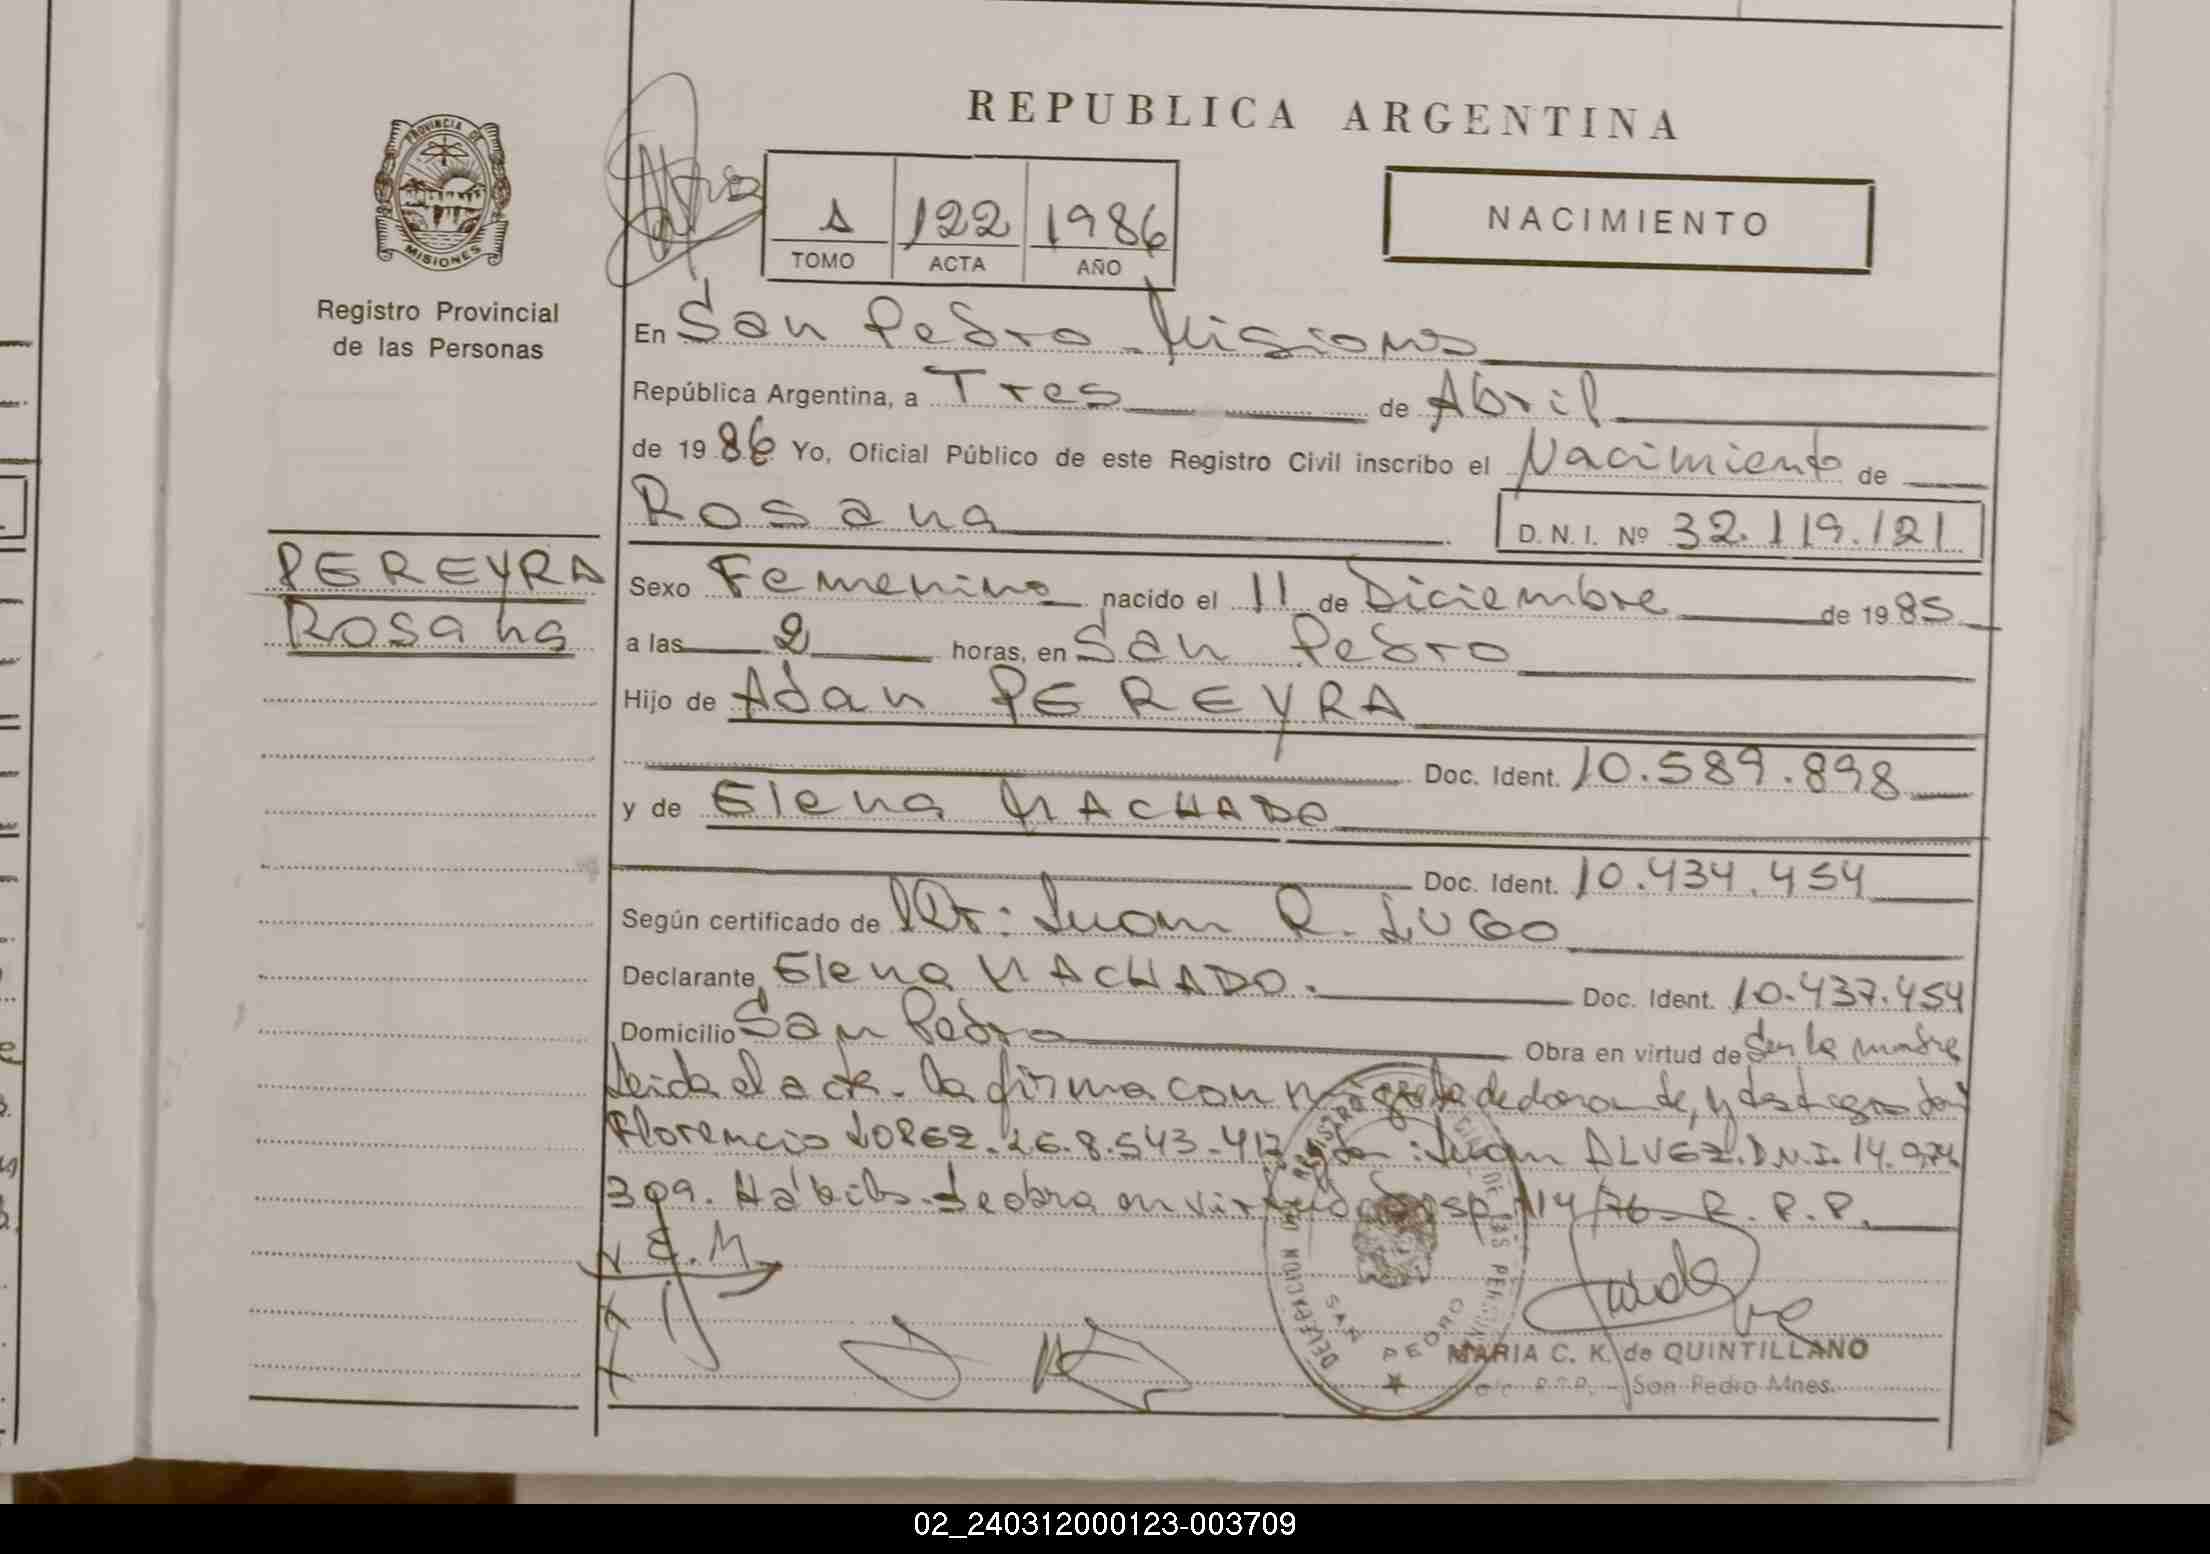 REPUBLICA ARGENTINA
PROVINCIA DE
MISIONES
Registro Provincial
de las Personas
1 122 1986
TOMO ACTA AÑO
NACIMIENTO
En San Pedro - Misiones
República Argentina, a Tres de Abril
de 1986 Yo, Oficial Público de este Registro Civil inscribo el Nacimiento de
Rosana D.N.I. Nº 32.119.121
PEREYRA
Rosana
Sexo Femenino nacido el 11 de Diciembre de 1985
a las 2 horas, en San Pedro
Hijo de Adan PEREYRA
Doc. Ident. 10.589.898
y de Elena MACHADO
Doc. Ident. 10.434.454
Según certificado de Dr: Juan R. LUGO
Declarante Elena MACHADO. Doc. Ident. 10.437.454
Domicilio San Pedro Obra en virtud de Ser la madre
Leida el acta - la firma con migo la declarante, y testigos
Florencio LOPEZ. L.E. 8.543.412 Juan ALVEZ. D.N.I. 14.974
309. Hábiles. Se obra en virtud Disp. 114/76 - R. P. P.
E. M.
DELEGACION DEL REGISTRO PROVINCIAL DE LAS PERSONAS
SAN PEDRO
MARIA C. K. de QUINTILLANO
San Pedro Mnes.
02_240312000123-003709